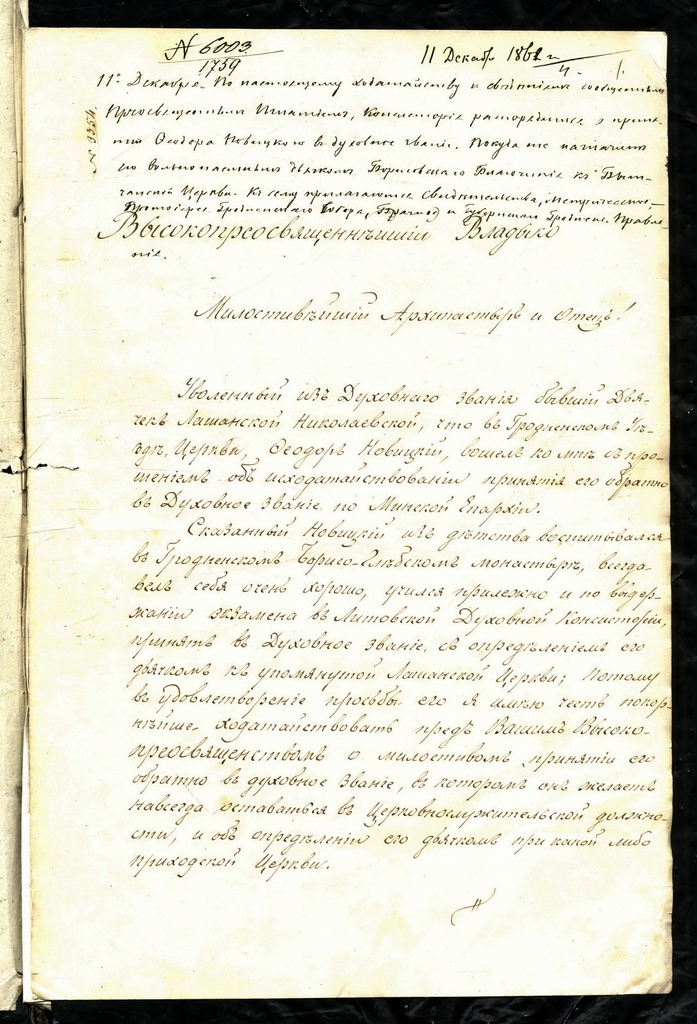 N 6003.
1759
11 Декабр 1861 г
11го Декабря. По настоящему ходатайству и свѣдѣніямъ сообщеннымъ
Преосвященнымъ Игнатіемъ, Консисторія распорядится о приня-
тіи Ѳеодора Новицкаго въ духовное званіе. Покуда же назначить
его вольнонаемнымъ дьякомъ Борисовщаго Благочинія къ
Церкви. Къ сему прилагаются Свидѣтельства, Метрическое,
Протоіерея Гродненскаго Собора, и Губернскаго Гродненс. Правле-
нія.
N 3354.
Высокопреосвященнѣйшій Владыко
Милостивѣйшій Архипастырь и Отецъ!
Уволенный изъ Духовнаго званія бывшій Дья-
чекъ Лашанской Николаевской, что въ Гродненскомъ Уѣ-
здѣ, Церкви, Ѳеодоръ Новицкій, вошелъ ко мнѣ съ про-
шеніемъ объ исходатайствованіи принятія его обратно
въ Духовное званіе по Минской Епархіи.
Сказанный Новицкій изъ дѣтства воспитывался
въ Гродненскомъ Борисо-Глѣбскомъ монастырѣ, всегда
велъ себя очень хорошо, учился прилежно и по выдер-
жаніи экзамена въ Литовской Духовной Консисторіи,
принятъ въ Духовное званіе, съ опредѣленіемъ его
дьячкомъ къ упомянутой Лашанской Церкви; потому
въ удовлетвореніе просьбы его я имѣю честь покор-
нѣйше ходатайствовать предъ Вашимъ Высоко-
преосвященствомъ о милостивомъ принятіи его
обратно въ духовное званіе, въ которомъ онъ желаетъ
навсегда оставаться въ Церковнослужительской должно-
сти, и объ опредѣленіи его дьячкомъ при какой либо
приходской Церкви.